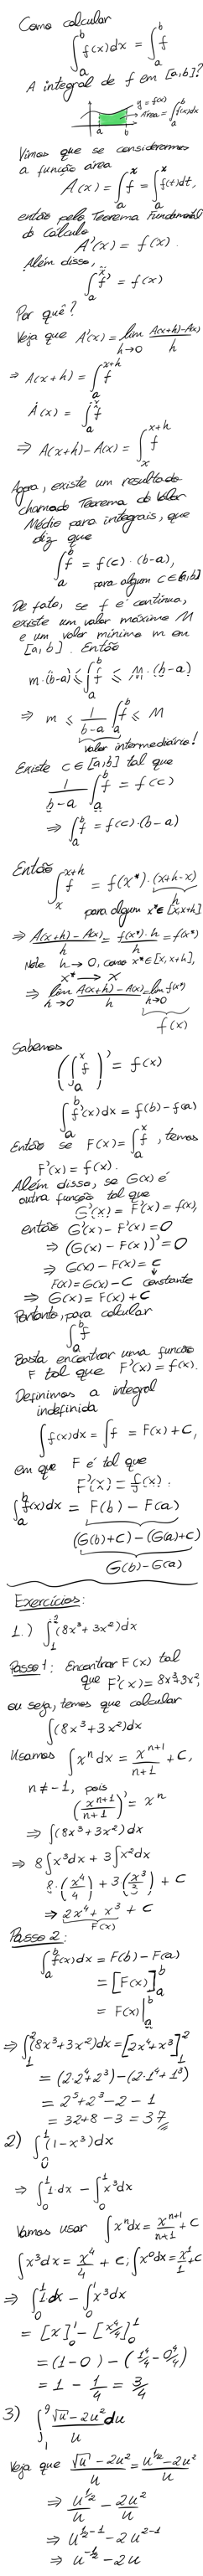 Como calcular
∫_a^b f(x)dx = ∫_a^b f
A integral de f em [a,b]?
y = f(x)
Área = ∫_a^b f(x)dx
a b
Vimos que se considerarmos
a função área
A(x) = ∫_a^x f = ∫_a^x f(t)dt,
então pelo Teorema Fundamental
do Cálculo
A'(x) = f(x).
Além disso,
∫_a^x f' = f(x)
Por quê?
Veja que A'(x) = lim_{h→0} (A(x+h)-A(x))/h
⇒ A(x+h) = ∫_a^{x+h} f
A(x) = ∫_a^x f
⇒ A(x+h) - A(x) = ∫_x^{x+h} f
Agora, existe um resultado
chamado Teorema do Valor
Médio para integrais, que
diz que
∫_a^b f = f(c) · (b-a),
para algum c ∈ [a,b]
De fato, se f é contínua,
existe um valor máximo M
e um valor mínimo m em
[a,b]. Então
m·(b-a) ≤ ∫_a^b f ≤ M·(b-a)
⇒ m ≤ 1/(b-a) ∫_a^b f ≤ M
valor intermediário!
Existe c ∈ [a,b] tal que
1/(b-a) ∫_a^b f = f(c)
⇒ ∫_a^b f = f(c)·(b-a)
Então
∫_x^{x+h} f = f(x*)·(x+h-x)
h
para algum x* ∈ [x,x+h]
⇒ (A(x+h)-A(x))/h = (f(x*)·h)/h = f(x*)
Note h → 0, como x* ∈ [x,x+h],
x* → x
⇒ lim_{h→0} (A(x+h)-A(x))/h = lim_{h→0} f(x*)
f(x)
Sabemos
(∫_a^x f)' = f(x)
∫_a^b f'(x)dx = f(b) - f(a)
Então se F(x) = ∫_a^x f, temos
F'(x) = f(x).
Além disso, se G(x) é
outra função tal que
G'(x) = F'(x) = f(x),
então G'(x) - F'(x) = 0
⇒ (G(x) - F(x))' = 0
⇒ G(x) - F(x) = C
F(x) = G(x) - C constante
⇒ G(x) = F(x) + C
Portanto, para calcular
∫_a^b f
Basta encontrar uma função
F tal que F'(x) = f(x).
Definimos a integral
indefinida
∫f(x)dx = ∫f = F(x) + C,
em que F é tal que
F'(x) = f(x).
∫_a^b f(x)dx = F(b) - F(a)
(G(b)+C) - (G(a)+C)
G(b) - G(a)
Exercícios:
1.) ∫_1^2 (8x³+3x²)dx
Passo 1: Encontrar F(x) tal
que F'(x) = 8x³+3x²,
ou seja, temos que calcular
∫(8x³+3x²)dx
Usamos ∫xⁿdx = x^{n+1}/(n+1) + C,
n ≠ -1, pois
(x^{n+1}/(n+1))' = xⁿ
⇒ ∫(8x³+3x²)dx
⇒ 8∫x³dx + 3∫x²dx
8·(x⁴/4) + 3(x³/3) + C
⇒ 2x⁴ + x³ + C
F(x)
Passo 2:
∫_a^b f(x)dx = F(b) - F(a)
= [F(x)]_a^b
= F(x)|_a^b
⇒ ∫_1^2 (8x³+3x²)dx = [2x⁴+x³]_1^2
= (2·2⁴+2³) - (2·1⁴+1³)
= 2⁵+2³-2-1
= 32+8-3 = 37
2) ∫_0^1 (1-x³)dx
⇒ ∫_0^1 1·dx - ∫_0^1 x³dx
Vamos usar ∫xⁿdx = x^{n+1}/(n+1) + C
∫x³dx = x⁴/4 + C; ∫x⁰dx = x¹/1 + C
⇒ ∫_0^1 1dx - ∫_0^1 x³dx
= [x]_0^1 - [x⁴/4]_0^1
= (1-0) - (1⁴/4 - 0⁴/4)
= 1 - 1/4 = 3/4
3) ∫_1^9 (√u - 2u²)/u du
Veja que (√u - 2u²)/u = (u^{1/2} - 2u²)/u
⇒ u^{1/2}/u - 2u²/u
⇒ u^{1/2-1} - 2u^{2-1}
⇒ u^{-1/2} - 2u